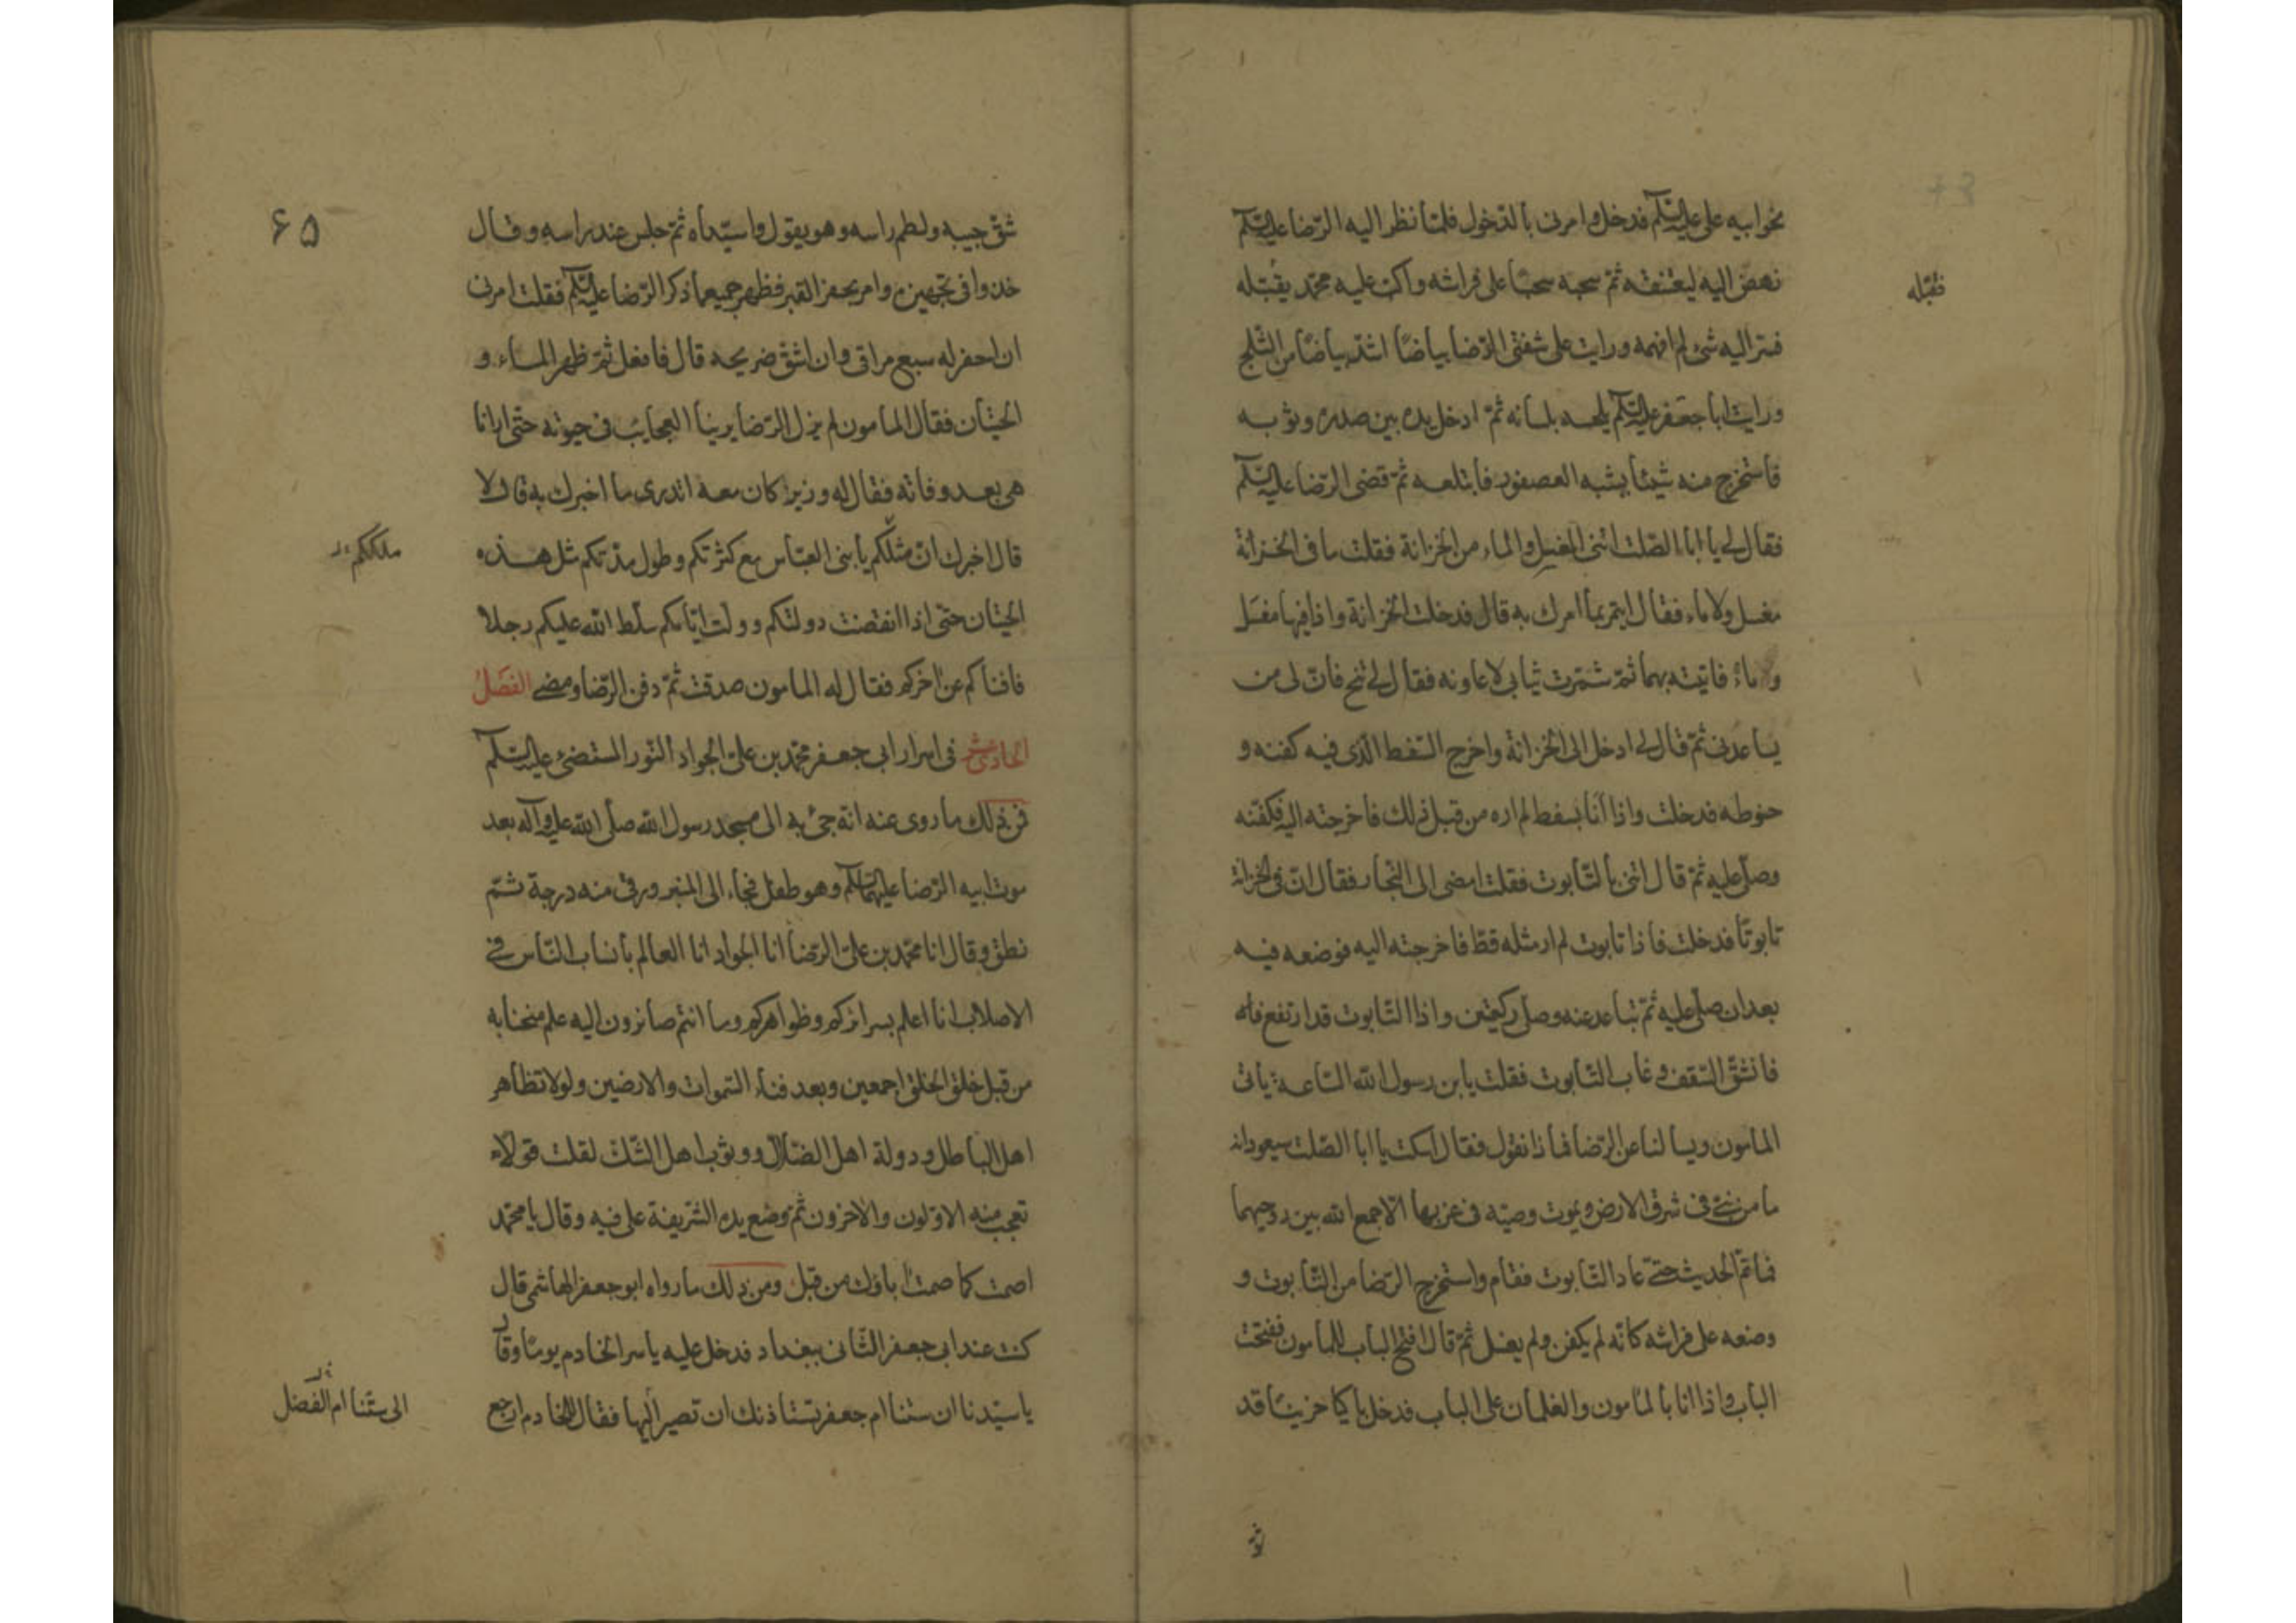 نحو ابيه على عليه السلم فدخل وامرنى بالدّخول فلمّا نظر اليه الرّضا عليه السّلم
نهض اليه ليعتنقه ثمّ سحبه سحبًا على فراشه واكب عليه محمّد يقبّله
فقبّله
فسرّ اليه شئ لم افهمه ورايت على شفتى الرّضا بياضًا اشدّ بياضًا من الثّلج
ورايت ابا جعفر عليه السّلم يلحسه بلسانه ثمّ ادخل يده بين صدره وثوبه
فاستخرج منه شيئًا يشبه العصفور فابتلعه ثمّ قضى الرّضا عليه السّلم
فقال لى يا ابا الصّلت ائتنى المغسل والماء من الخزانة فقلت ما فى الخزانة
مغسل ولا ماء فقال ايتمر بما امرك به قال فدخلت الخزانة واذا فيها مغسل
وماء فاتيته بهما ثمّ شمّرت ثيابى لاعاونه فقال لى تنح فانّ لى من
يساعدنى ثمّ قال لى ادخل الى الخزانة واخرج السّفط الّذى فيه كفنه و
حنوطه فدخلت واذا انا بسفط لم اره من قبل ذلك فاخرجته اليه فكفّنه
وصلّى عليه ثمّ قال ائتنى بالتّابوت فقلت امضى الى النّجار فقال انّ فى الخزانة
تابوتًا فدخلت فاذا تابوت لم ار مثله قطّ فاخرجته اليه فوضعه فيه
بعد ان صلّى عليه ثمّ تباعد عنه وصلّى ركعتين واذا التّابوت قد ارتفع
فانشقّ السّقف وغاب التّابوت فقلت يا بن رسول الله السّاعة ياتى
المامون ويسالنا عن الرّضا فماذا نقول فقال اسكت يا ابا الصّلت سيعود انه
ما من نبىّ فى شرق الارض ويموت وصيّه فى غربها الّا جمع الله بين روحيهما
فما تمّ الحديث حتّى عاد التّابوت فقام واستخرج الرّضا من التّابوت و
وضعه على فراشه كانّه لم يكفن ولم يغسل ثمّ قال افتح الباب للمامون ففتحت
الباب واذا انا بالمامون والغلمان على الباب فدخل باكيا حزينًا قد
٦٥
شقّ جيبه ولطم راسه وهو يقول وا سيّداه ثمّ جلس عند راسه وقال
خذوا فى تجهيزه وامر بحفر القبر فظهر جميع ما ذكر الرّضا عليه السّلم فقلت امرنى
ان احفر له سبع مراقى وان اشق ضريحه قال فافعل ثمّ ظهر الماء و
الحيتان فقال المامون لم يزل الرّضا يرينا العجايب فى حيوته حتّى ارانا
هى بعد وفاته فقال له وزير كان معه اتدرى ما اخبرك به قال لا
قال اخبرك انّ مثلكم يا بنى العبّاس مع كثرتكم وطول مدّتكم مثل هذه
ملككم
الحيتان حتّى اذا انقضت دولتكم وولت ايّامكم سلّط الله عليكم رجلا
فافناكم عن اخركم فقال له المامون صدقت ثمّ دفن الرّضا ومضى الفصل
الحادى عشر فى اسرار ابى جعفر محمّد بن علىّ الجواد النّور المستضئ عليه السّلم
فمن ذلك ما روى عنه انّه جئ به الى مسجد رسول الله صلّى الله عليه وآله بعد
موت ابيه الرّضا عليهما السّلم وهو طفل فجاء الى المنبر ورقى منه درجة ثمّ
نطق وقال انا محمّد بن علىّ الرّضا انا الجواد انا العالم بانساب النّاس فى
الاصلاب انا اعلم بسرائركم وظواهركم وما انتم صائرون اليه علم منحنا به
من قبل خلق الخلق اجمعين وبعد فناء السّموات والارضين ولولا تظاهر
اهل الباطل ودولة اهل الضّلال ووثوب اهل الشّك لقلت قولًا
تعجب منه الاوّلون والاخرون ثمّ وضع يده الشّريفة على فيه وقال يا محمّد
اصمت كما صمت اباؤك من قبل ومن ذلك ما رواه ابو جعفر الهاشمى قال
كنت عند ابى جعفر الثّانى ببغداد فدخل عليه ياسر الخادم يومًا وقال
يا سيّدنا ان ستنا ام جعفر تستاذنك ان تصير اليها فقال للخادم ارجع
الى ستّنا ام الفضل